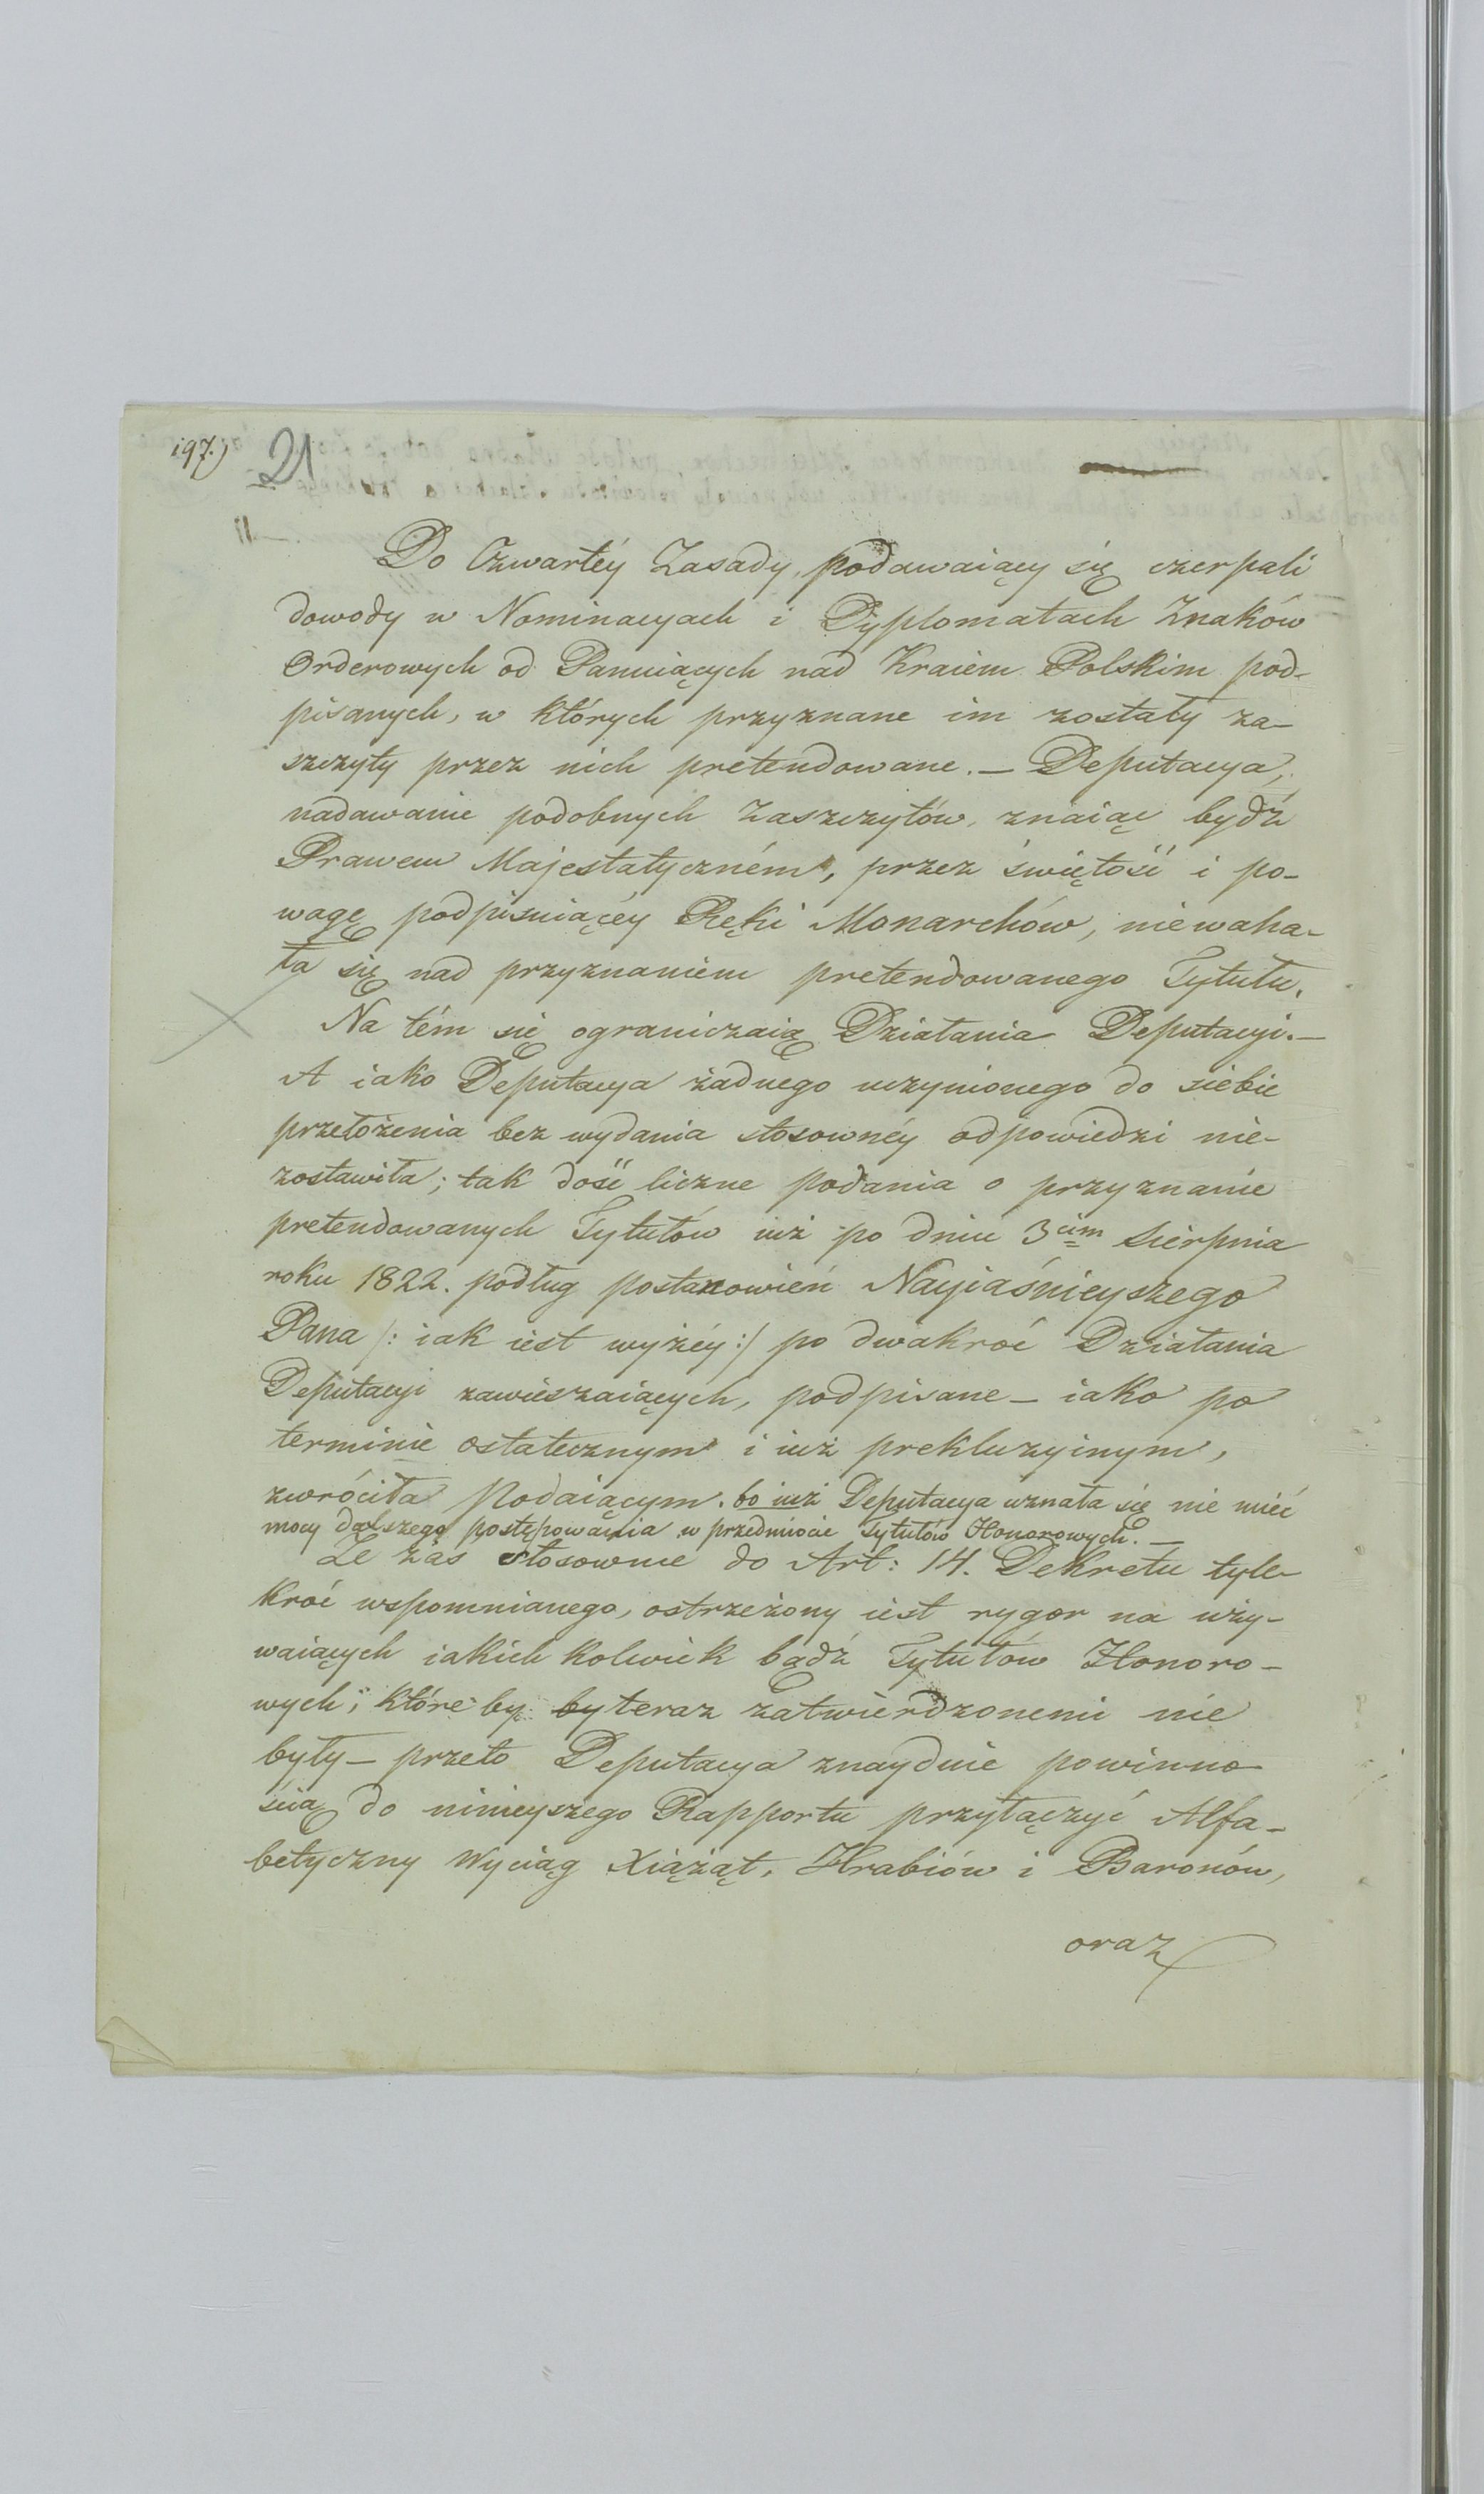 197.)
21
Do Czwartéy Zasady, podawaiący się czerpali
dowody w Nominacyach i Dyplomatach Znaków
Orderowych od Panuiących nad Kraiem Polskim pod-
pisanych, w których przyznane im zostały za-
szczyty przez nich pretendowane. — Deputacya,
nadawanie podobnych Zaszczytów, znaiąc bydź
Prawem Majestatyczném, przez świętość i po-
wagę podpisuiącéy Ręki Monarchów, niewaha-
ła się nad przyznaniem pretendowanego Tytułu.
Na tém się ograniczaią Działania Deputacyi. —
A iako Deputacya żadnego uczynionego do siebie
przełożenia bez wydania stosownéy odpowiedzi nie-
zostawiła; tak dość liczne podania o przyznanie
pretendowanych Tytułów iuż po dniu 3cim Sierpnia
roku 1822. podług postanowień Nayiaśnieyszego
Pana /: iak iest wyżéy :/ po dwakroć Działania
Deputacyi zawieszaiących, podpisane — iako po
terminie ostatecznym i iuż prekluzyinym,
zwróciła Podaiącym. bo iuż Deputacya uznała się nie mieć
mocy dalszego postępowania w przedmiocie Tytułów Honorowych. —
Ze zaś stosownie do Art: 14. Dekretu tyle-
kroć wspomnianego, ostrzeżony iest rygor na uży-
waiących iakich kolwiek bądź Tytułów Honoro-
wych, które by by teraz zatwierdzonemi nie
były — przeto Deputacya znayduie powinno-
ścią do ninieyszego Rapportu przyłączyć Alfa-
betyczny Wyciąg Xiążąt, Hrabiów i Baronów,
oraz